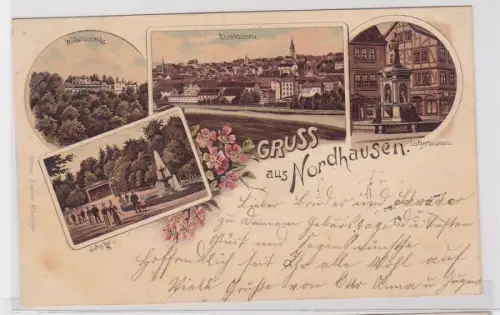 Wilhelmshöhe
Nordhausen.
Lutherbrunnen.
Gehege.
GRUSS
aus Nordhausen.
Lieber Bruder und Schwager
zu Deinem Geburtstage die besten
Glück und Segenswünsche
Hoffentlich seit Ihr alle Wohl auf
Viele Grüße von Anna u